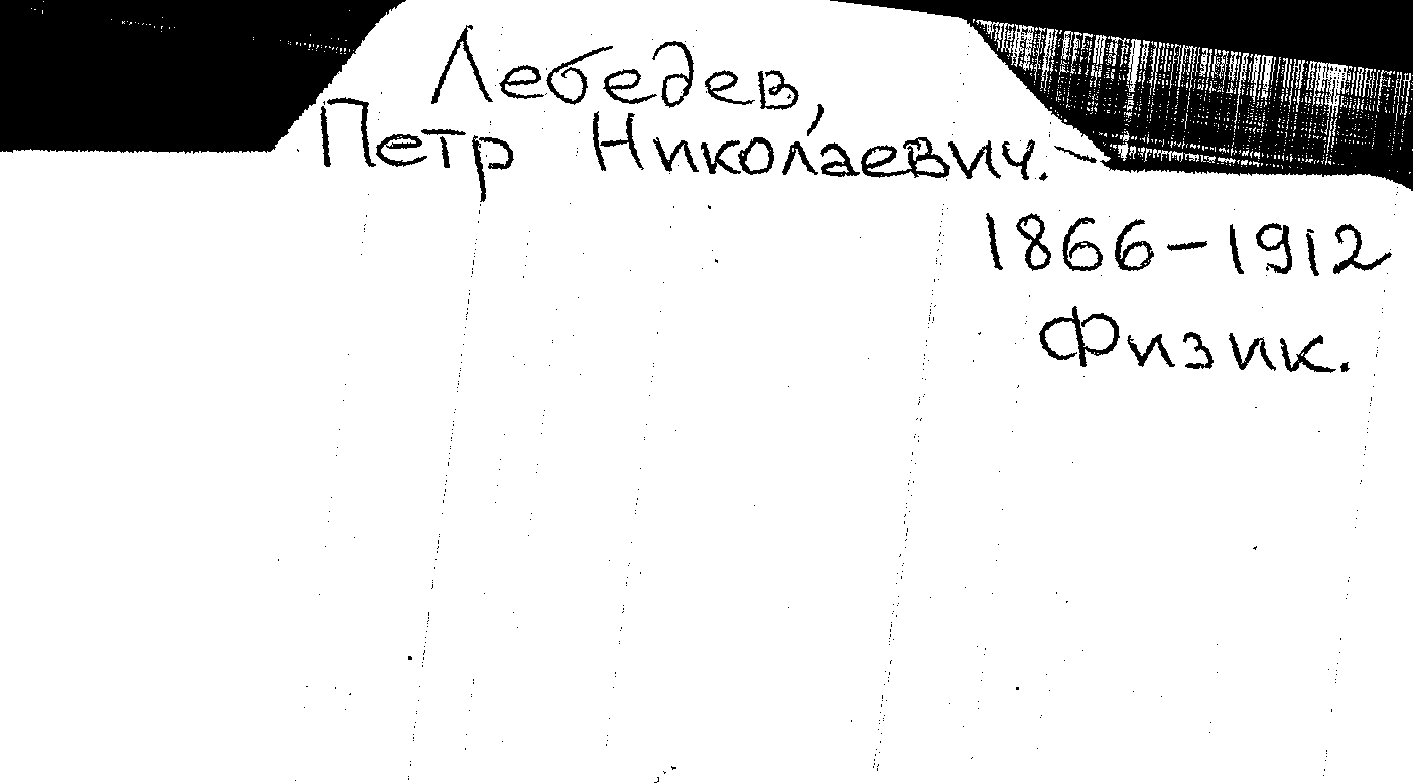 Лебедев,
Петр Николаевич.
1866-1912
Физик.